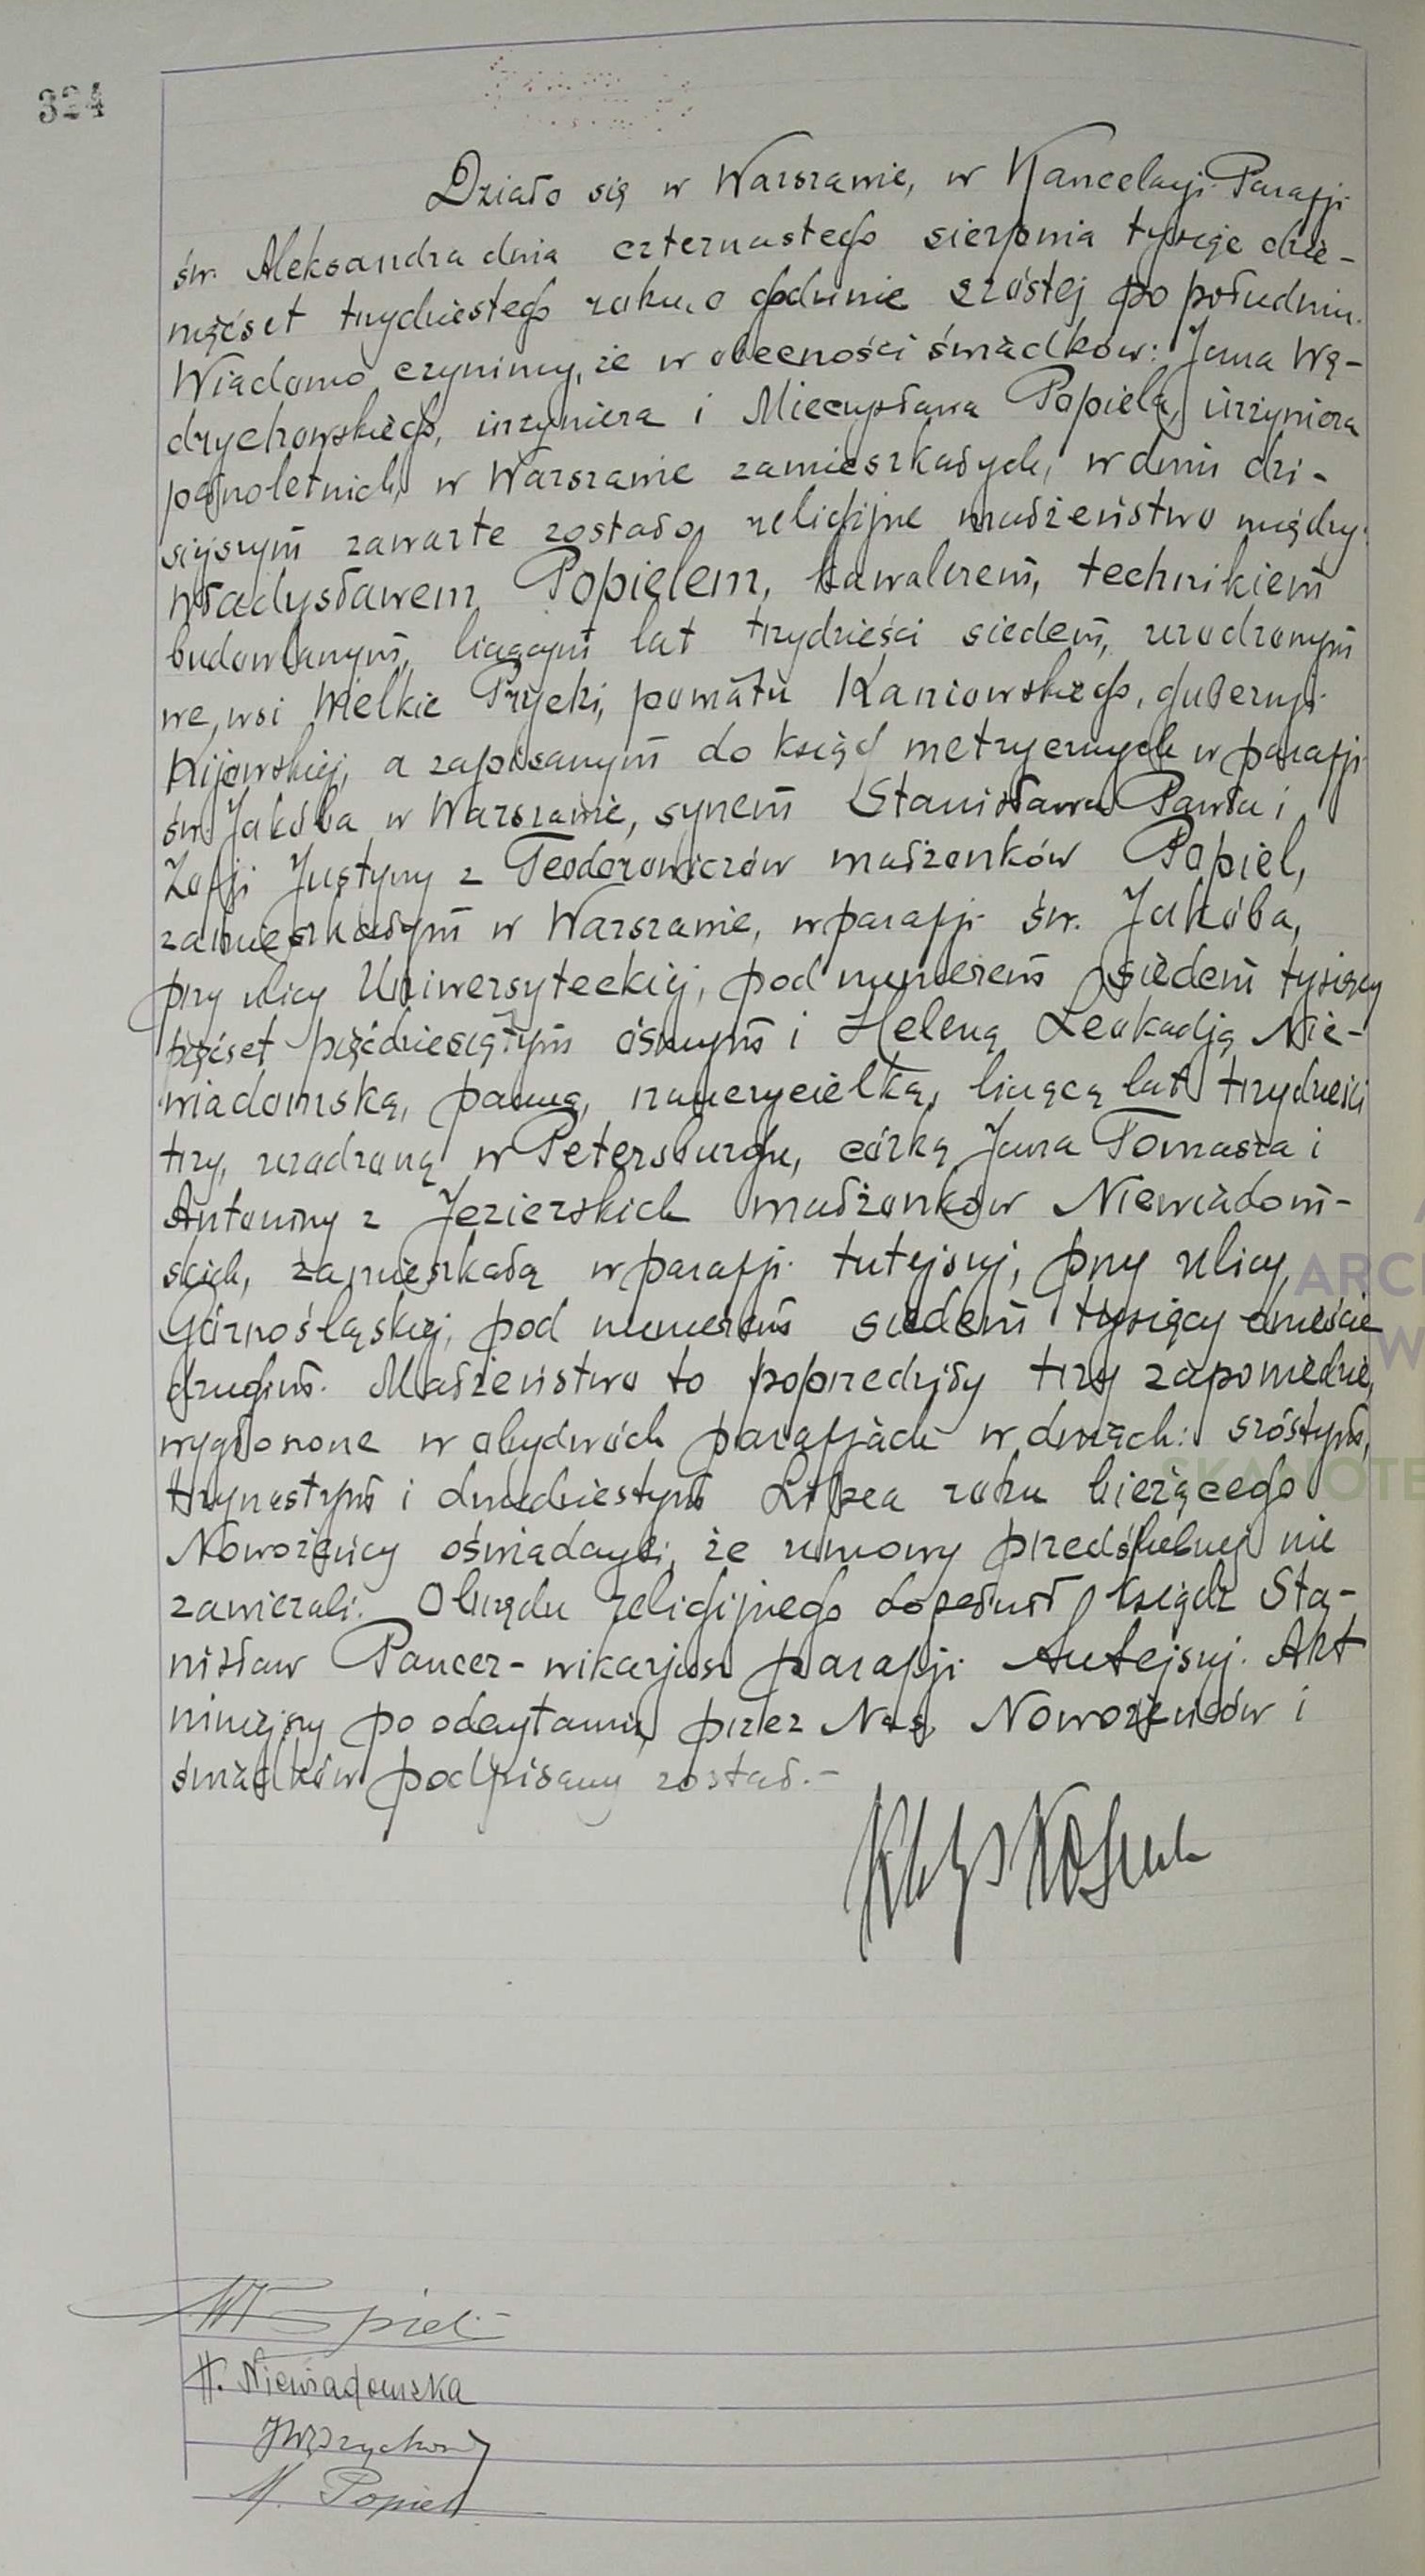 324
Działo się w Warszawie, w Kancelarji Parafji
św. Aleksandra dnia czternastego sierpnia tysiąc dzie-
więćset trzydziestego roku, o godzinie szóstej po południu.
Wiadomo czynimy, że w obecności świadków: Jana Wą-
drychowskiego, inżyniera i Mieczysława Popiela, inżyniera
pełnoletnich, w Warszawie zamieszkałych, w dniu dzi-
siejszym zawarte zostało religijne małżeństwo między
Władysławem Popielem, kawalerem, technikiem
budowlanym, liczącym lat trzydzieści siedem, urodzonym
we wsi Wielkie Prycki, powiatu Kaniowskiego, gubernji
Kijowskiej, a zapisanym do ksiąg metrycznych w parafji
św. Jakóba w Warszawie, synem Stanisława Pawła i
Zofji Justyny z Teodorowiczów małżonków Popiel,
zamieszkałym w Warszawie, w parafji św. Jakóba,
przy ulicy Uniwersyteckiej, pod numerem siedem tysięcy
pięćset pięćdziesiątym ósmym i Heleną Leokadją Nie-
wiadomską, panną, nauczycielką, liczącą lat trzydzieści
trzy, urodzoną w Petersburgu, córką Jana Tomasza i
Antoniny z Jezierskich małżonków Niewiadom-
skich, zamieszkałą w parafji tutejszej, przy ulicy
Górnośląskiej, pod numerem siedem tysięcy dwieście
drugim. Małżeństwo to poprzedziły trzy zapowiedzie,
wygłoszone w obydwóch parafjach w dniach: szóstym,
trzynastym i dwudziestym Lipca roku bieżącego
Nowożeńcy oświadczyli, że umowy przedślubnej nie
zawierali. Obrzędu religijnego dopełnił ksiądz Sta-
nisław Pancer - wikarjusz parafji tutejszej. Akt
niniejszy po odczytaniu przez Nas, Nowożeńców i
świadków podpisany został.-
W Popiel
H. Niewiadomska
JWądrychowski
M. Popiel